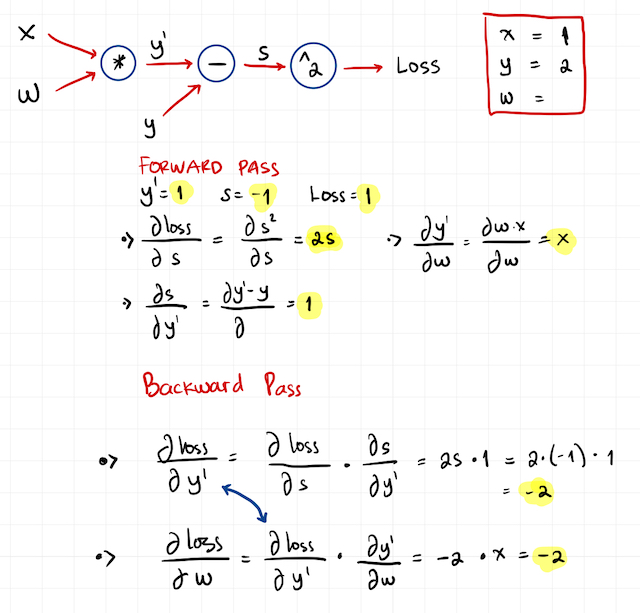 x
w
*
y'
−
y
s
^2
Loss
x = 1
y = 2
w =
FORWARD PASS
y' = 1 s = -1 Loss = 1
·> ∂loss/∂s = ∂s²/∂s = 2s ·> ∂y'/∂w = ∂w·x/∂w = x
·> ∂s/∂y' = ∂y'-y/∂ = 1
Backward Pass
·> ∂loss/∂y' = ∂loss/∂s · ∂s/∂y' = 2s · 1 = 2·(-1)·1
= -2
·> ∂loss/∂w = ∂loss/∂y' · ∂y'/∂w = -2 · x = -2